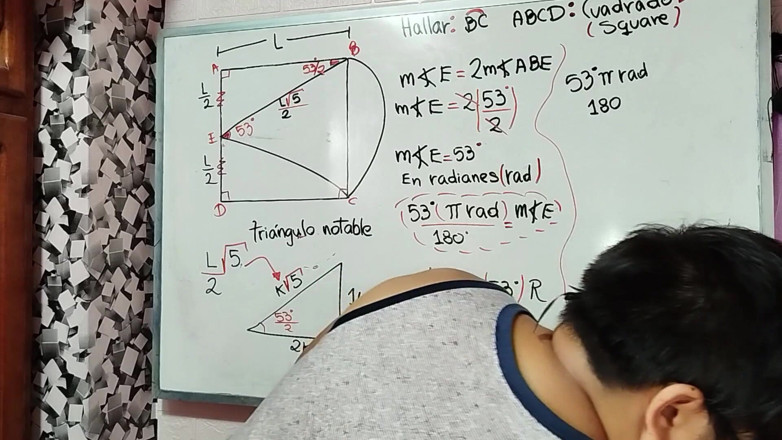 Hallar: BC ABCD: Cuadrado
(Square)
L
A
B
53°/2
L/2
L√5/2
E
53°
L/2
D
C
m∡E = 2m∡ABE
m∡E = 2(53°/2)
m∡E = 53°
En radianes (rad)
53°(π rad)/180° = m∡E
53°π rad
180
triángulo notable
L/2 √5
K√5
53°/2
R